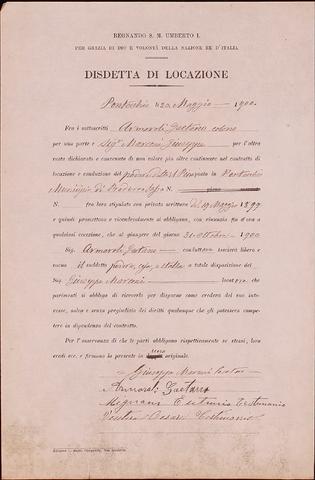 REGNANDO S. M. UMBERTO I.
PER GRAZIA DI DIO E VOLONTÀ DELLA NAZIONE RE D'ITALIA
DISDETTA DI LOCAZIONE
Maggio 1900.
Fra i sottoscritti Armaroli Gaetano colono
per una parte e Sigr Marconi Giuseppe per l'altra
resta dichiarato e convenuto di non volere più oltre continuare nel contratto di
locazione e conduzione del podere posto in Pontecchio
Municipio di N.
N. fra loro stipulato con privata scrittura del 19 Maggio 1899
e quindi promettono e vicendevolmente si obbligano, con rinunzia fin d'ora a
qualsiasi eccezione, che al giungere del giorno 31 Ottobre 1900
Sig. Armaroli Gaetano conduttore lascierà libero e
vacuo il suddetto podere, casa, e stalla a totale disposizione del
Sig. Giuseppe Marconi locatore che
parimenti si obbliga di riceverli per disporne come crederà del suo interesse, salvo e senza pregiudizio dei diritti qualunque che gli potessero competere in dipendenza del contratto.
Per l'osservanza di che le parti obbligano rispettivamente se stessi, loro
eredi ecc. e firmano la presente in originale.
Giuseppe Marconi
Armaroli Gaetano
Testimonio
Cesare Testimonio